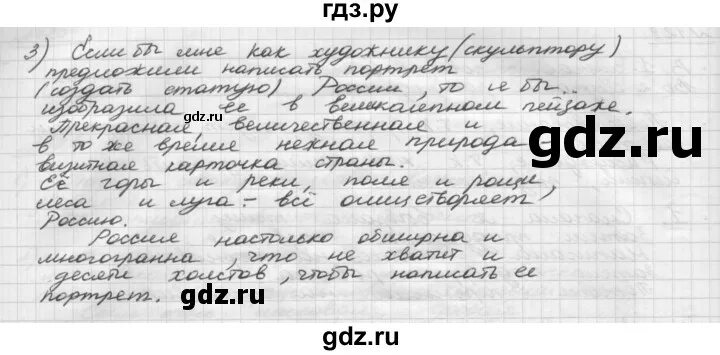 гдз.ру
3) Если бы мне как художнику (скульптору)
предложили написать портрет
(создать статую) России, то я бы..
изобразила ее в великолепном пейзаже.
Прекрасная, величественная и
в то же время нежная природа -
визитная карточка страны.
Её горы и реки, поля и рощи,
леса и луга - всё олицетворяет
Россию.
Россия настолько обширна и
многогранна, что не хватит и
десяти холстов, чтобы написать ее
портрет.
gdz.ru
gdz.ru
gdz.ru
gdz.ru
gdz.ru
gdz.ru